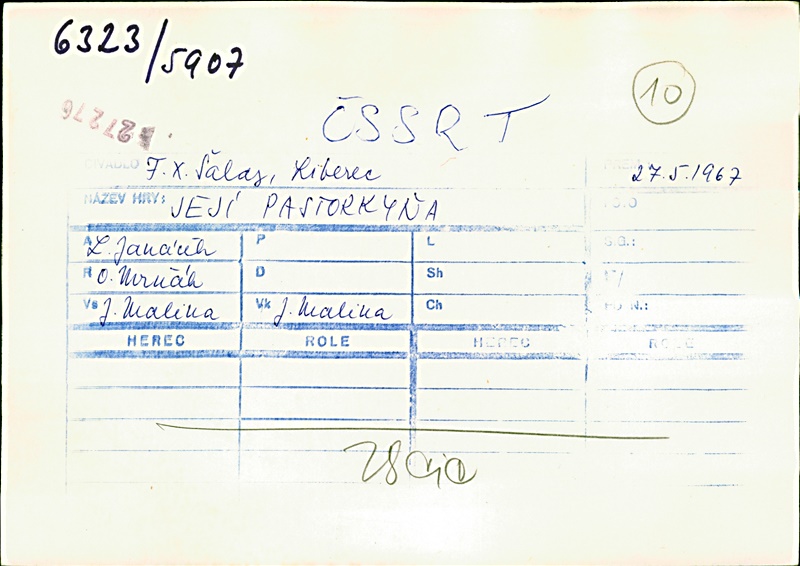 6323/5907
10
272276
ČSSR T
DIVADLO F. X. Šaldy, Liberec 27.5.1967
NÁZEV HRY: JEJÍ PASTORKYŇA
A L. Janáček P L
R O. Mrňák D Sh
Vs J. Malina Vk J. Malina Ch
HEREC ROLE HEREC ROLE